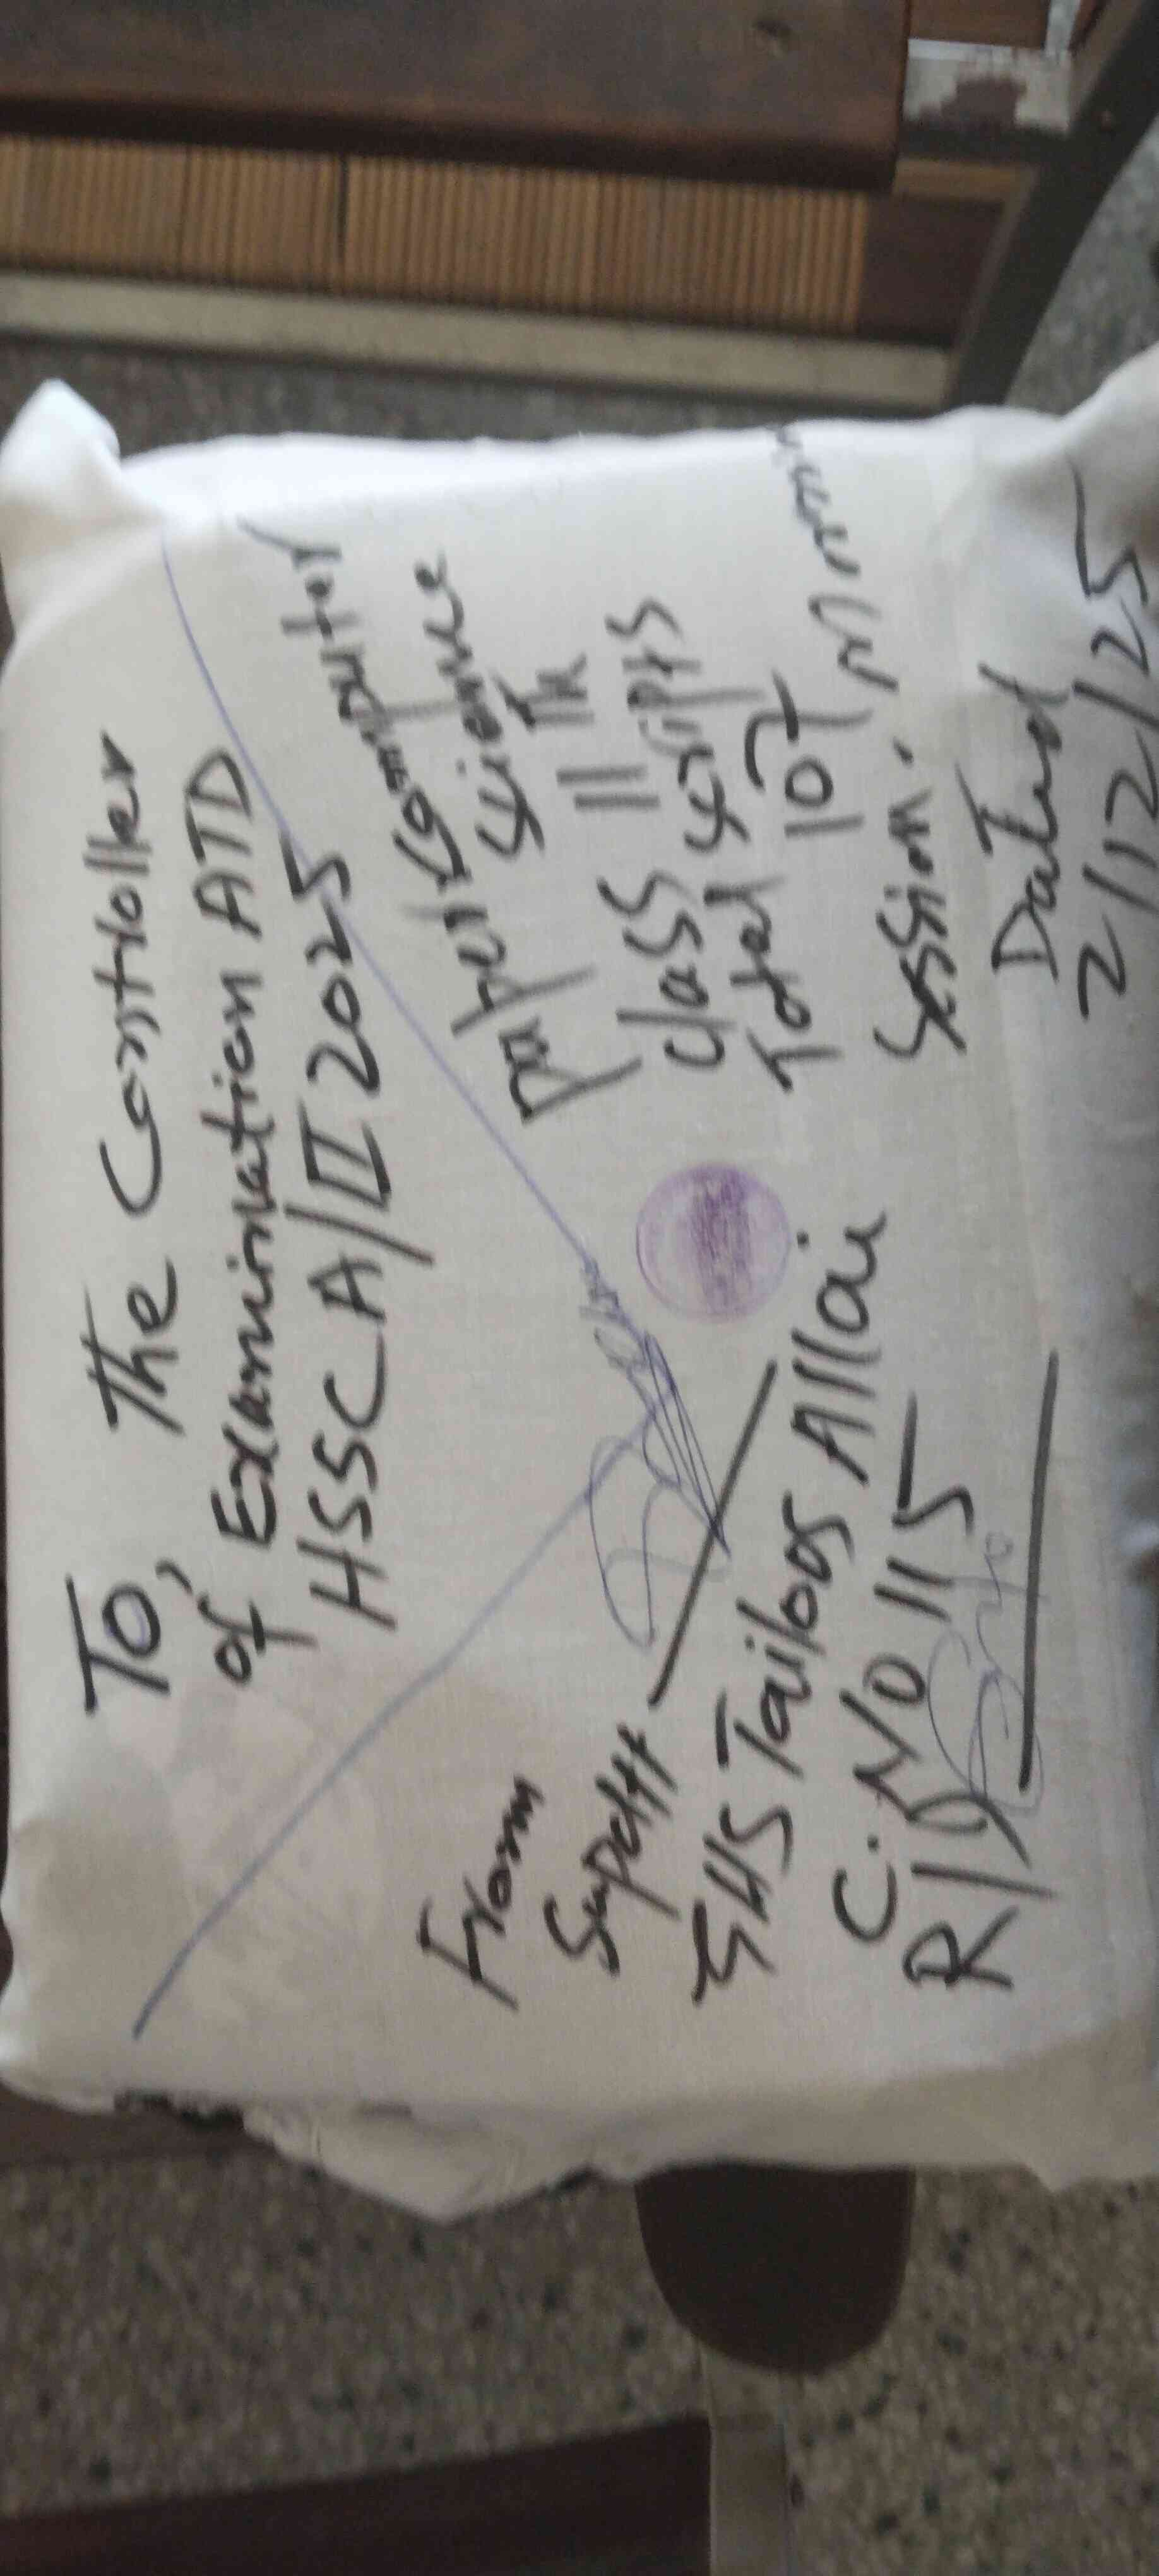 To, The Controller
of Examination ATD
HSSC A/II 2025
Paper, Computer
Science
Class 11th
Total Scripts
107
Session, Morning
Dated
2/12/25
From
Supdtt
GHS Tailoos Allai
C. No 115
R/D